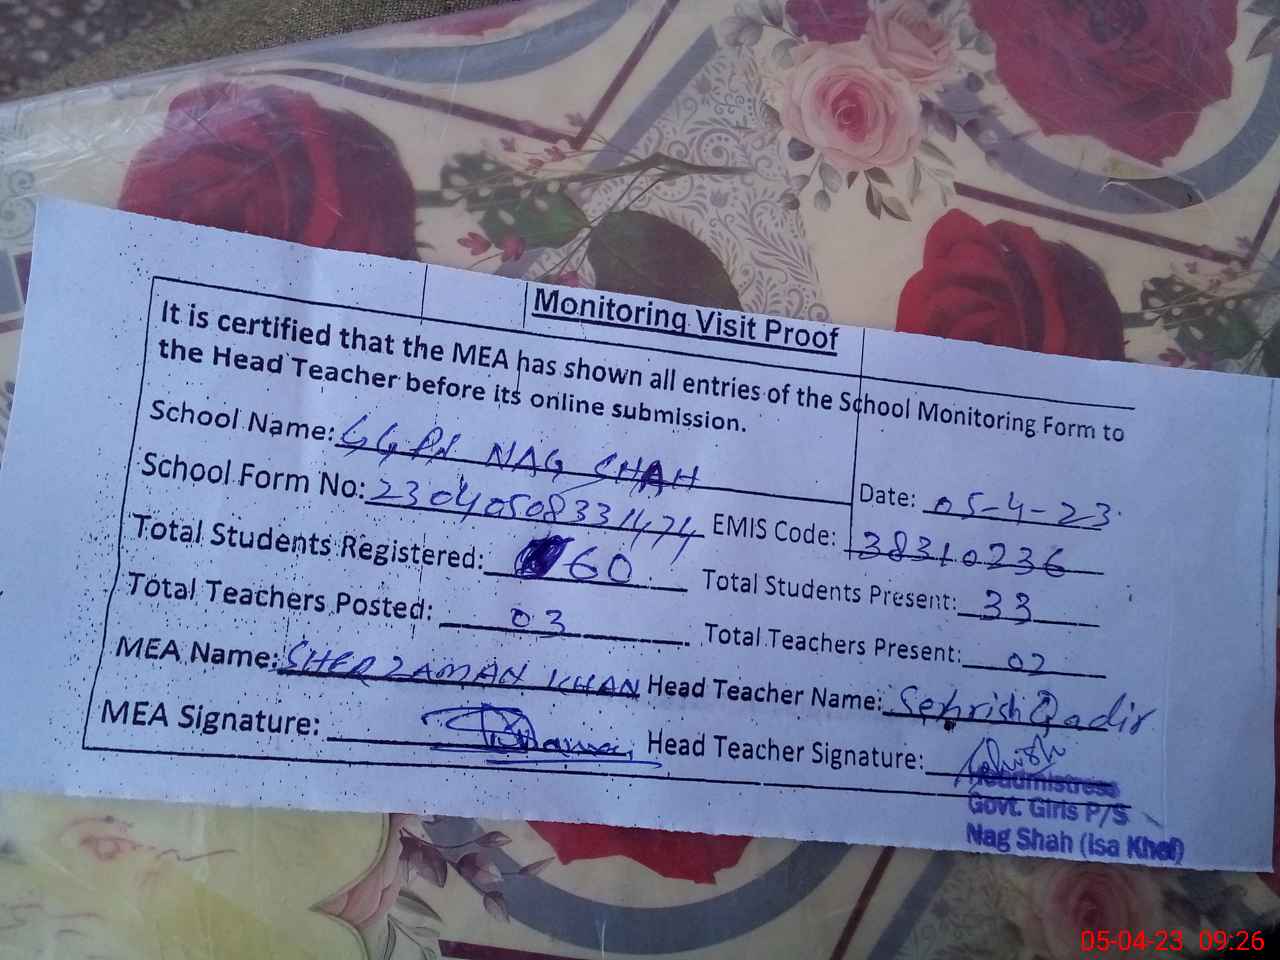 Monitoring Visit Proof
It is certified that the MEA has shown all entries of the School Monitoring Form to
the Head Teacher before its online submission.
School Name: GGPS NAG SHAH Date: 05-4-23
School Form No: 230405083311474 EMIS Code: 38310236
Total Students Registered: 60 Total Students Present: 33
Total Teachers Posted: 03 Total Teachers Present: 02
MEA Name: SHER ZAMAN KHAN Head Teacher Name: Sehrish Qadir
MEA Signature: Head Teacher Signature:
Headmistress
Govt. Girls P/S
Nag Shah (Isa Khel)
05-04-23 09:26